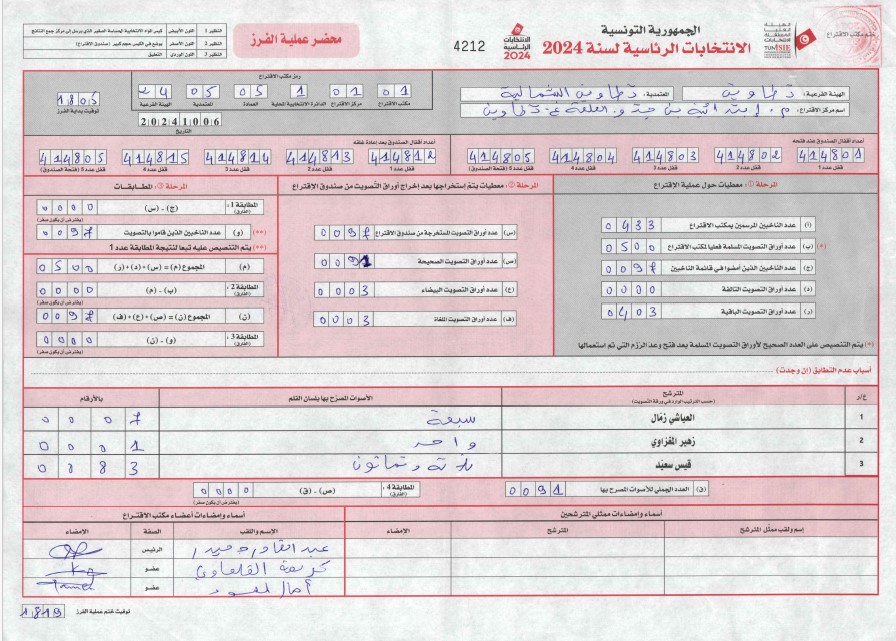 ختم مكتب الاقتراع
الجمهورية التونسية
الانتخابات الرئاسية لسنة 2024
TUNISIE
الانتخابات الرئاسية 2024
4212
محضر عملية الفرز
النظير 1 اللون الأبيض
النظير 2 اللون الأصفر يوضع في الكيس حجم كبير (صندوق الاقتراع)
النظير 3 اللون الوردي التعليق
الهيئة الفرعية: تطاوين المعتمدية: تطاوين الشمالية
اسم مركز الاقتراع
رمز مكتب الاقتراع
01 01 1 05 05 24
مكتب الاقتراع مركز الاقتراع الدائرة الانتخابية المحلية العمادة المعتمدية الهيئة الفرعية
1805
توقيت بداية الفرز
20241006
التاريخ
أعداد أقفال الصندوق عند فتحه
414801 414802 414803 414804 414805
قفل عدد 1 قفل عدد 2 قفل عدد 3 قفل عدد 4 قفل عدد 5 (فتحة الصندوق)
أعداد أقفال الصندوق بعد إعادة غلقه
414812 414813 414814 414815 414805
قفل عدد 1 قفل عدد 2 قفل عدد 3 قفل عدد 4 قفل عدد 5 (فتحة الصندوق)
المرحلة 1: معطيات حول عملية الاقتراع
(أ) عدد الناخبين المرسمين بمكتب الاقتراع 0433
(*) (ب) عدد أوراق التصويت المسلمة فعليا لمكتب الاقتراع 0500
(ج) عدد الناخبين الذين أمضوا في قائمة الناخبين 0097
(د) عدد أوراق التصويت التالفة 0000
(ر) عدد أوراق التصويت الباقية 0403
(*) يتم التنصيص على العدد الصحيح لأوراق التصويت المسلمة بعد فتح وعد الرزم التي تم استعمالها
المرحلة 2: معطيات يتم إستخراجها بعد إخراج أوراق التصويت من صندوق الإقتراع
(س) عدد أوراق التصويت المستخرجة من صندوق الاقتراع 0097
(ص) عدد أوراق التصويت الصحيحة 0091
(ع) عدد أوراق التصويت البيضاء 0003
(ف) عدد أوراق التصويت الملغاة 0003
المرحلة 3: المطابقات
المطابقة 1: (الفارق) (ج) - (س) 0000
(يفترض أن يكون صفر)
(**) (و) عدد الناخبين الذين قاموا بالتصويت 0097
(**) يتم التنصيص عليه تبعا لنتيجة المطابقة عدد 1
(م) المجموع (م) = (س) + (د) + (ر) 0500
المطابقة 2: (الفارق) (ب) - (م) 0000
(يفترض أن يكون صفر)
(ن) المجموع (ن) = (ص) + (ع) + (ف) 0097
المطابقة 3: (الفارق) (و) - (ن) 0000
(يفترض أن يكون صفر)
أسباب عدم التطابق (إن وجدت)
ع/ر المترشح الأصوات المصرح بها بلسان القلم بالأرقام
(حسب الترتيب الوارد في ورقة التصويت)
1 العياشي زمال سبعة 0007
2 زهير المغزاوي واحد 0001
3 قيس سعيد ثلاثة وثمانون 0083
(ق) العدد الجملي للأصوات المصرح بها 0091
المطابقة 4: (الفارق) (ص) - (ق) 0000
(يفترض أن يكون صفر)
أسماء وإمضاءات ممثلي المترشحين
إسم ولقب ممثل المترشح المترشح الإمضاء
أسماء وإمضاءات أعضاء مكتب الاقتراع
الإسم واللقب الصفة الإمضاء
عبد القادر الرئيس
كريمة القلعاوي عضو
آمال عضو
توقيت ختم عملية الفرز 1819